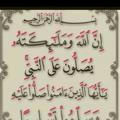 بسم الله الرحمن الرحيم
إِنَّ اللَّهَ وَمَلَٰئِكَتَهُ
يُصَلُّونَ عَلَى النَّبِيِّ
يَا أَيُّهَا الَّذِينَ ءَامَنُوا صَلُّوا عَلَيْهِ